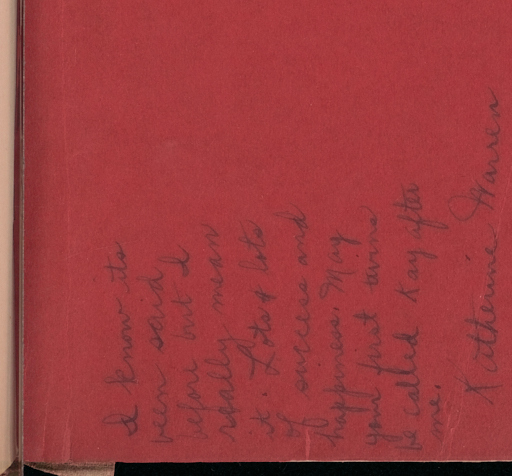 I know its
been said
before but I
really mean
it. Lots & lots
of success and
happiness. May
your first twins
be called Kay after
me.
Katherine Warren